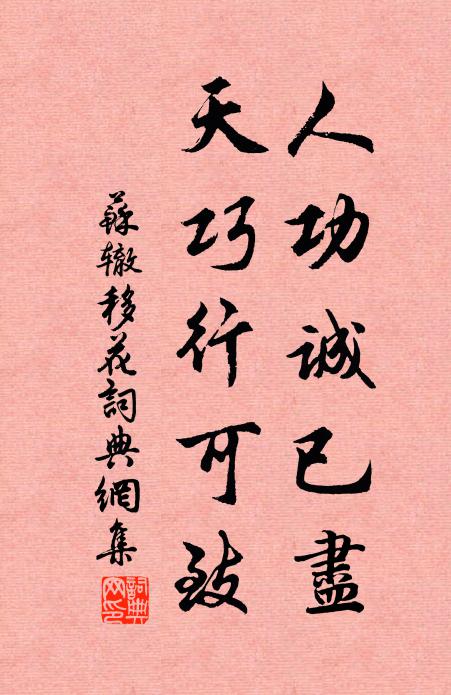 人功誠已盡
天巧行可致
蘇轍移花詞典網集
詞典
网印